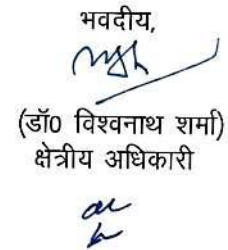 भवदीय,
(डॉ0 विश्वनाथ शर्मा)
क्षेत्रीय अधिकारी